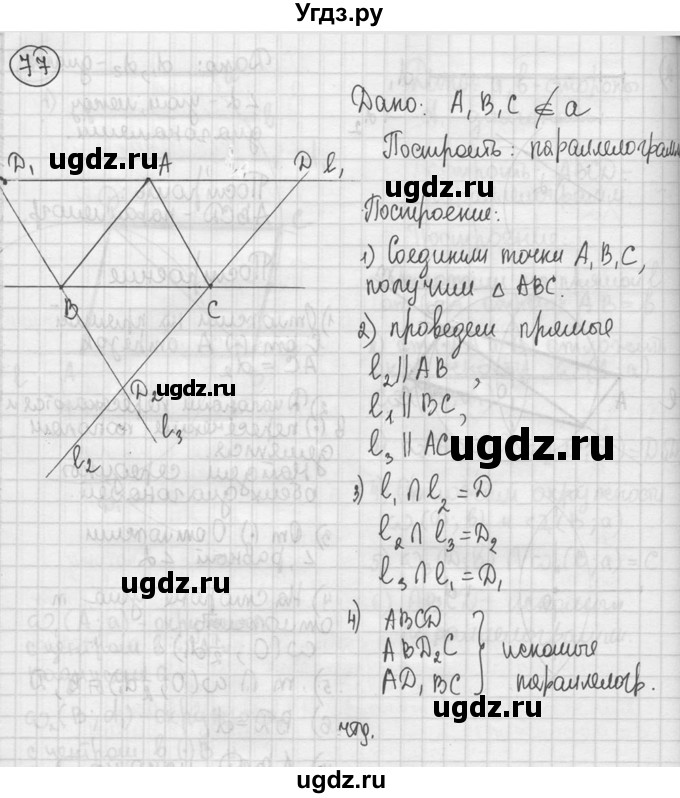 Угдз.ру
77
Дано: A, B, C ∉ a
Построить: параллелограмм
Построение:
1) Соединим точки A, B, C,
получим △ ABC.
2) проведем прямые
l₂ || AB,
l₁ || BC,
l₃ || AC
3) l₁ ∩ l₂ = D
l₂ ∩ l₃ = D₂
l₃ ∩ l₁ = D₁
4) ABCD
ABD₂C
AD₁BC
искомые
параллелогр.
чтд.
D₁ A D l₁
B C
D₂
l₃
l₂
ugdz.ru
ugdz.ru
ugdz.ru
ugdz.ru
ugdz.ru
ugdz.ru
ugdz.ru